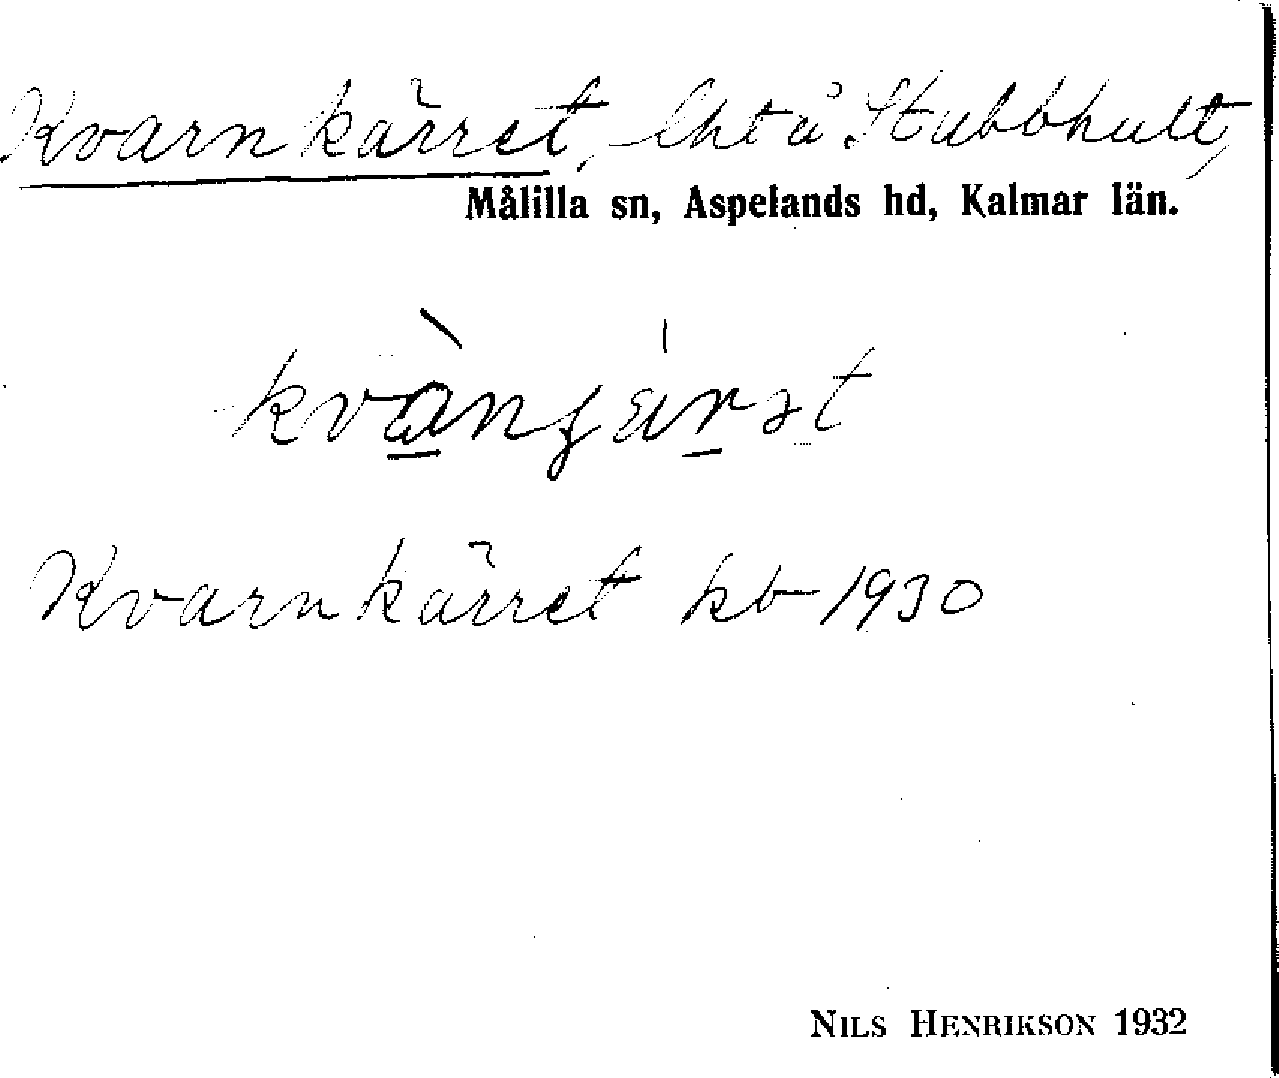 Kvarnkärret, lht å Stubbhult,
Målilla sn, Aspelands hd, Kalmar län.
Kvarnkärret kb 1930
NILS HENRIKSON 1932